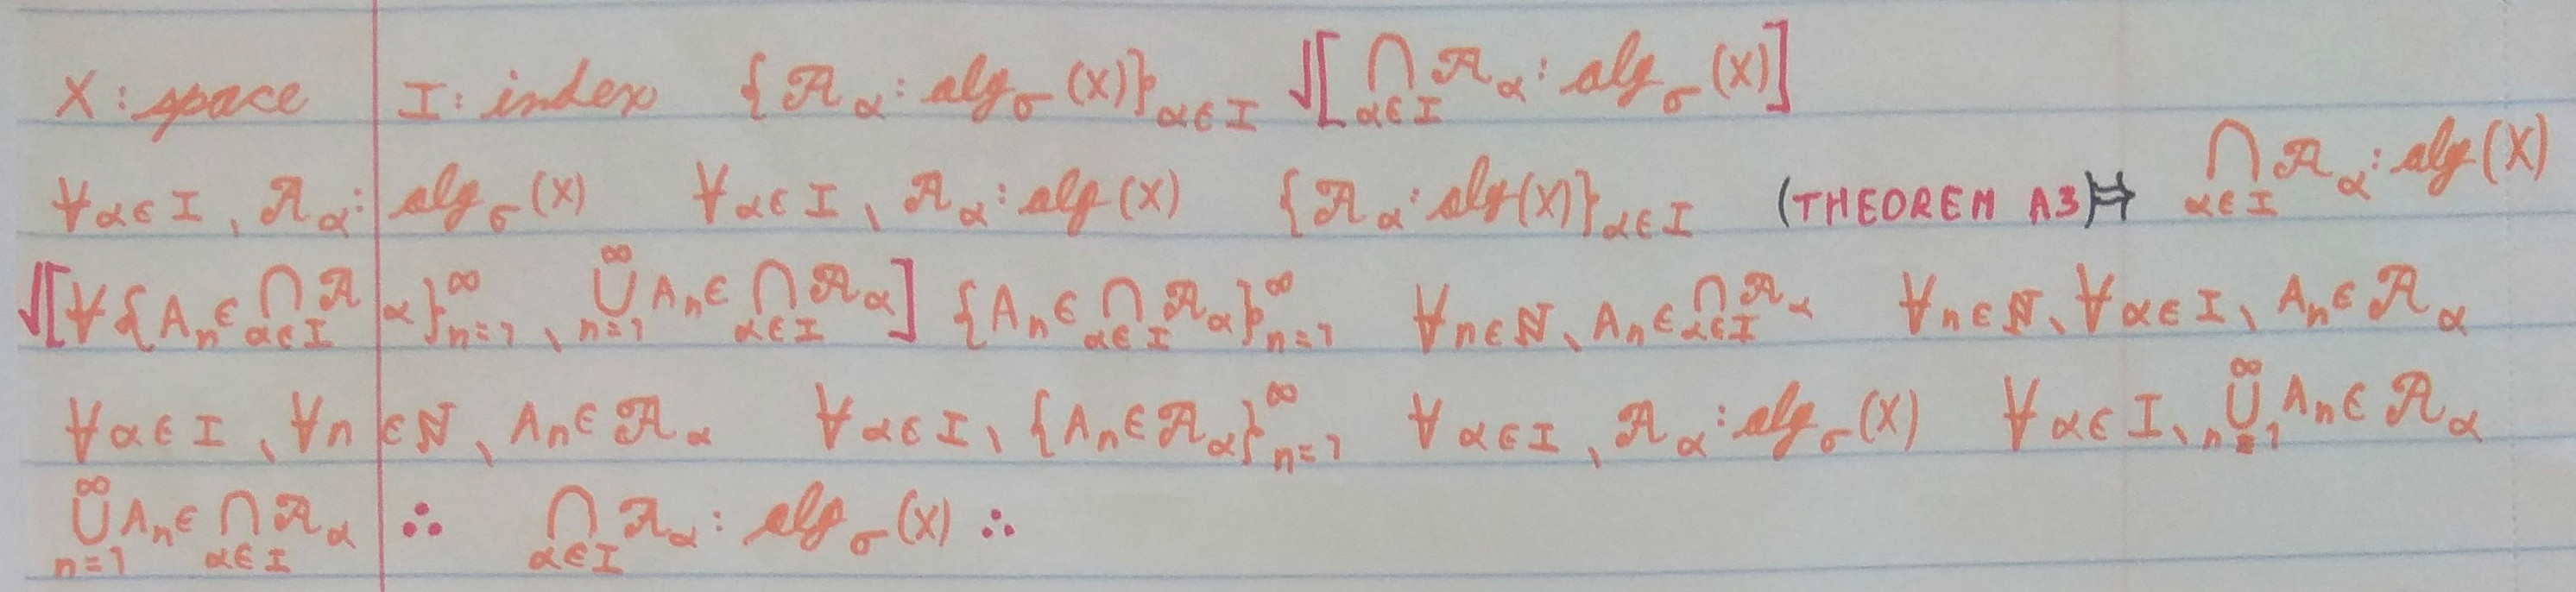 X : space I : index {𝒜_α : alg_σ (X)}_{α∈I} √[ ⋂_{α∈I} 𝒜_α : alg_σ (X) ]
∀α∈I, 𝒜_α : alg_σ (X) ∀α∈I, 𝒜_α : alg (X) {𝒜_α : alg (X)}_{α∈I} (THEOREM A3) ⇒ ⋂_{α∈I} 𝒜_α : alg (X)
√[ ∀ {A_n ∈ ⋂_{α∈I} 𝒜_α}_{n=1}^∞, ⋃_{n=1}^∞ A_n ∈ ⋂_{α∈I} 𝒜_α ] {A_n ∈ ⋂_{α∈I} 𝒜_α}_{n=1}^∞ ∀n∈ℕ, A_n ∈ ⋂_{α∈I} 𝒜_α ∀n∈ℕ, ∀α∈I, A_n ∈ 𝒜_α
∀α∈I, ∀n∈ℕ, A_n ∈ 𝒜_α ∀α∈I, {A_n ∈ 𝒜_α}_{n=1}^∞ ∀α∈I, 𝒜_α : alg_σ (X) ∀α∈I, ⋃_{n=1}^∞ A_n ∈ 𝒜_α
⋃_{n=1}^∞ A_n ∈ ⋂_{α∈I} 𝒜_α ∴ ⋂_{α∈I} 𝒜_α : alg_σ (X) ∴